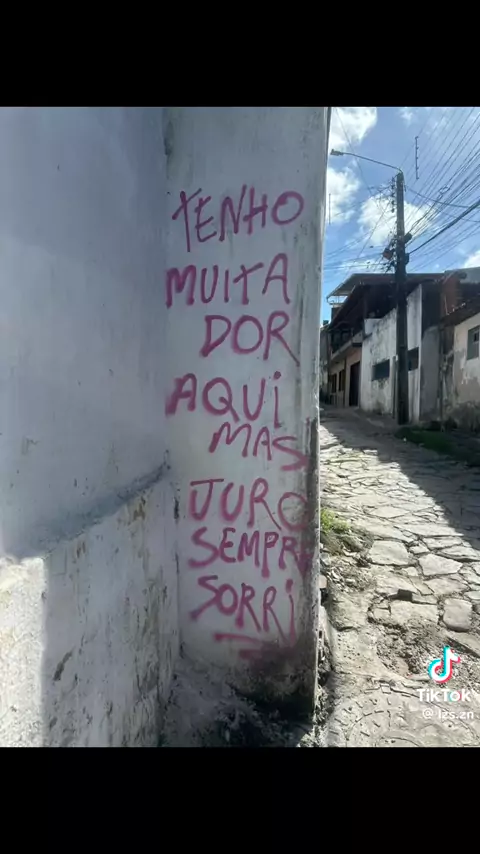 TENHO
MUITA
DOR
AQUi
MAS
JURO
SEMPRE
SORRi
TikTok
@ lzs.zn